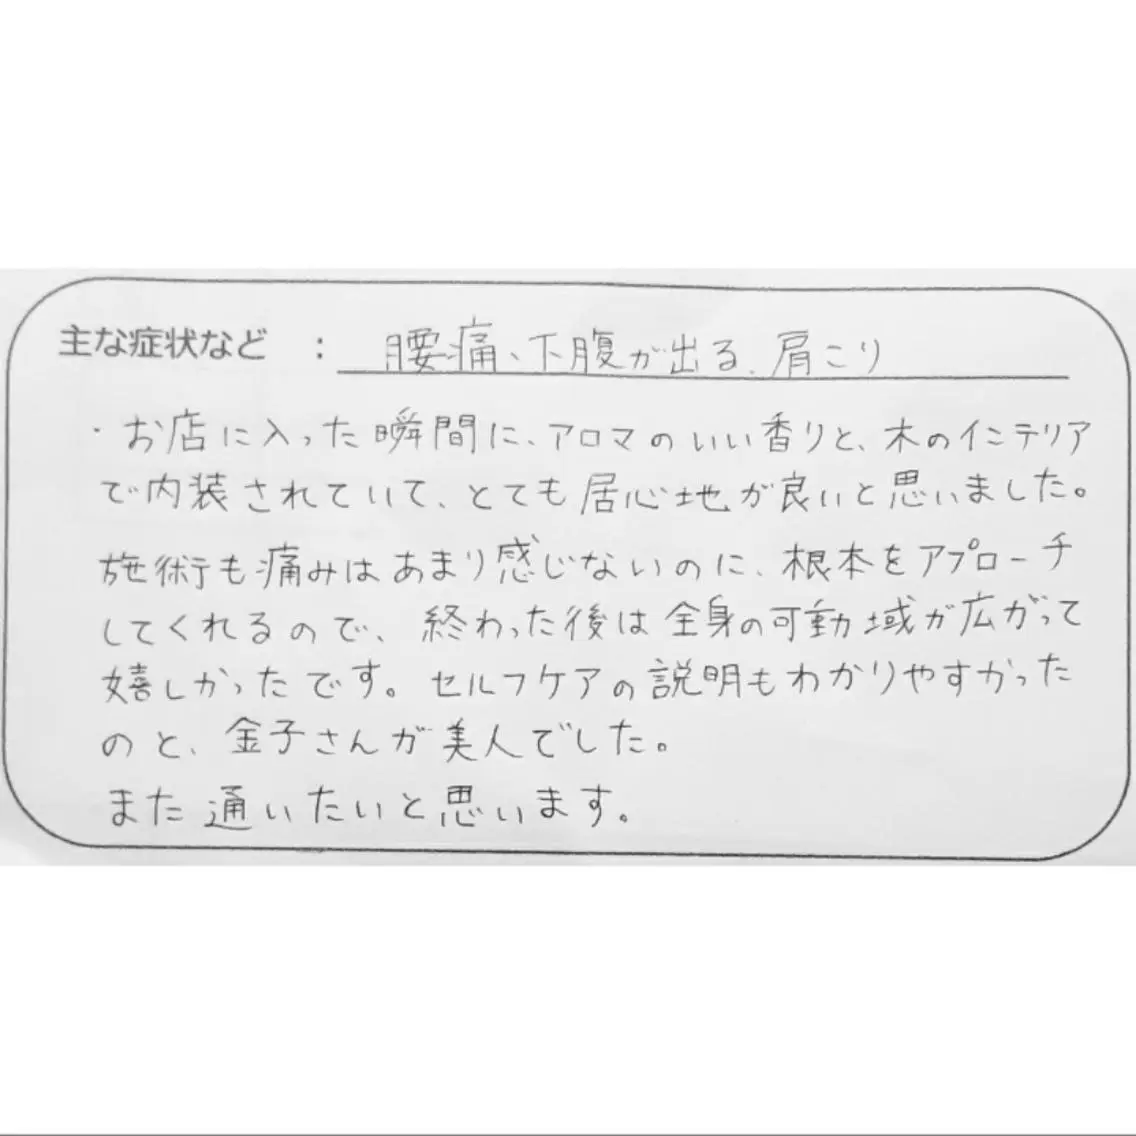 主な症状など : 腰痛、下腹が出る、肩こり
・お店に入った瞬間に、アロマのいい香りと、木のインテリア
で内装されていて、とても居心地が良いと思いました。
施術も痛みはあまり感じないのに、根本をアプローチ
してくれるので、終わった後は全身の可動域が広がって
嬉しかったです。セルフケアの説明もわかりやすかった
のと、金子さんが美人でした。
また通いたいと思います。